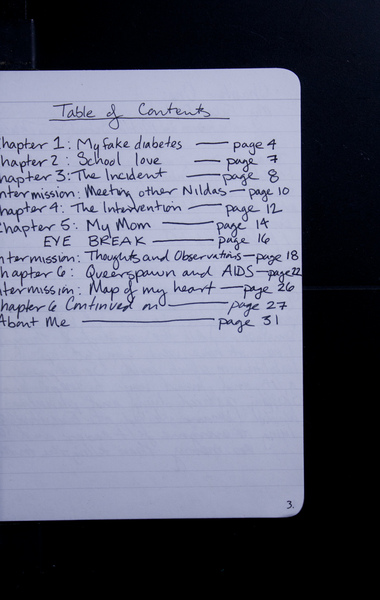 Table of Contents
hapter 1: My fake diabetes — page 4
hapter 2: School love — page 7
hapter 3: The Incident — page 8
ntermission: Meeting other Nildas — page 10
hapter 4: The Intervention — page 12
Chapter 5: My Mom — page 14
EYE BREAK — page 16
ntermission: Thoughts and Observations — page 18
hapter 6: Queerspawn and AIDS — page 22
ntermission: Map of my heart — page 26
hapter 6 Continued on — page 27
About Me — page 31
3.